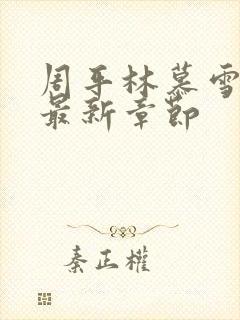 周平林慕雪
最新章节
秦正權